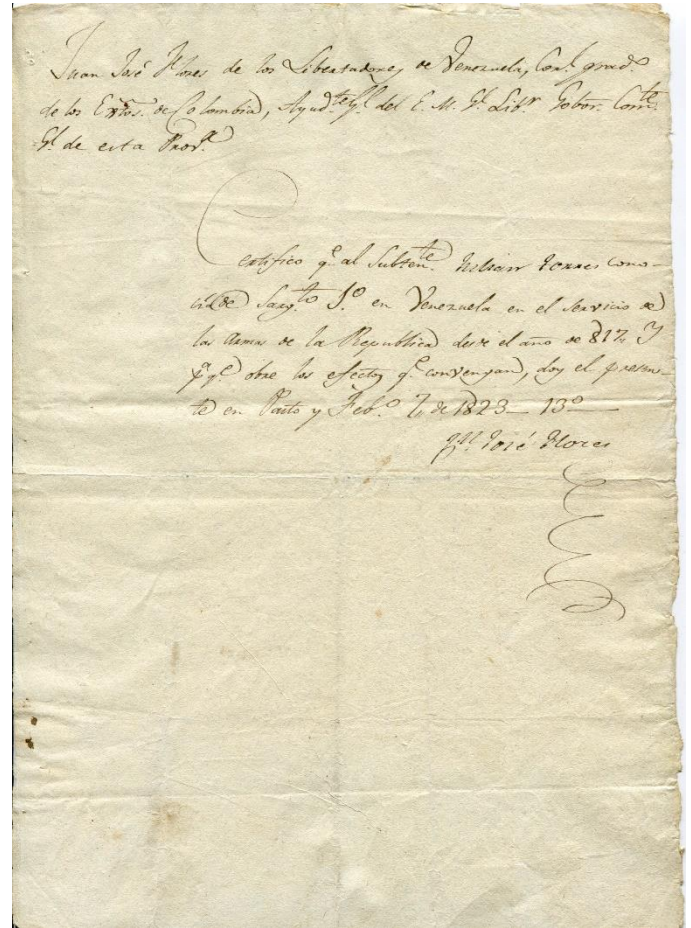 Juan José Flores de los Libertadores de Venezuela, Con.l grad.o
de los Extos. de Colombia, Ayud.te G.l del E. M. G.l Lib.r Gobor. Com.te
G.l de esta Prov.a
Certifico q.e al Subten.te Torres cono-
ci de Sarg.to 1.o en Venezuela en el servicio de
las Armas de la Republica desde el año de 817, y
p.a q.e obre los efectos q.e convengan, doy el presen-
te en Pasto y Feb.o 7, de 1823 — 13.o —
J.n José Flores